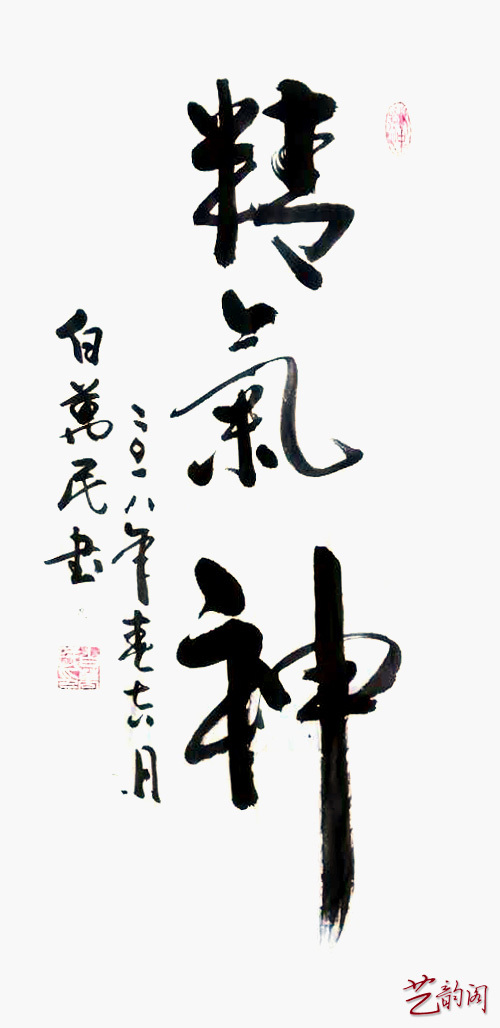 精氣神
二〇一八年春月
白萬民書
艺韵阁